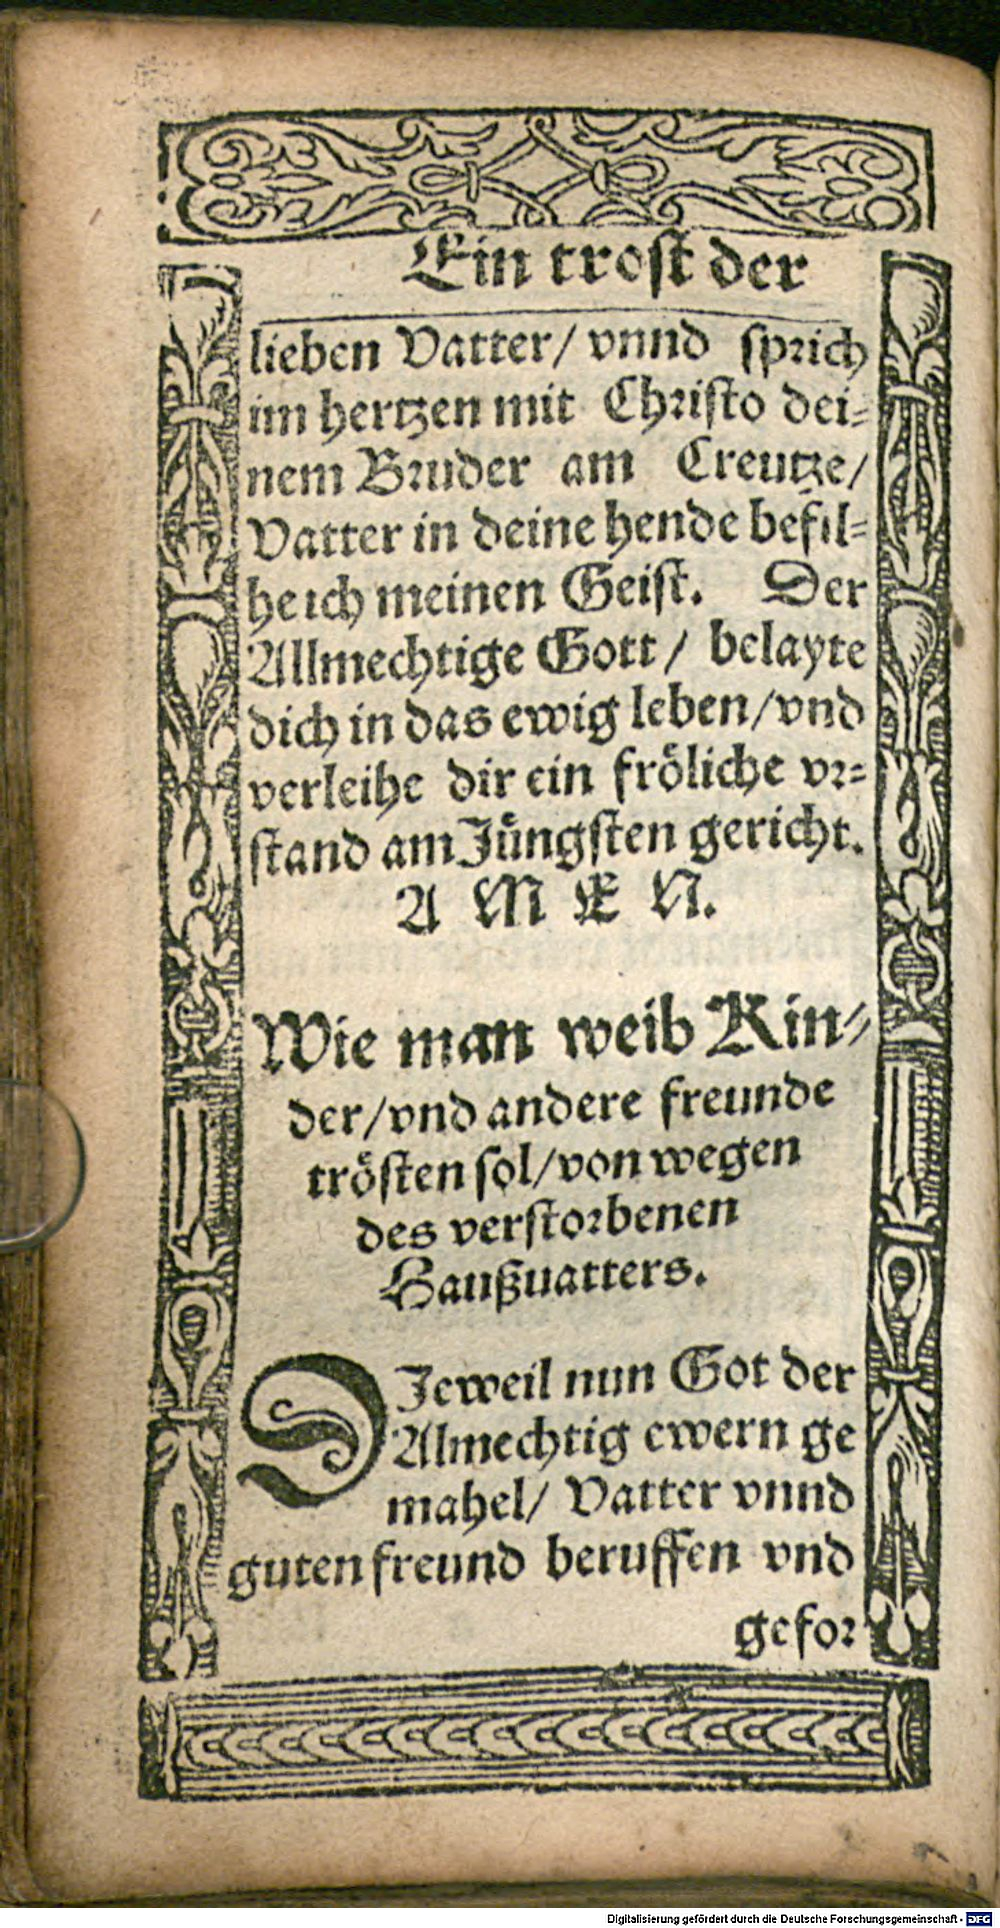 Ein trost der
lieben Vatter/ vnnd sprich
im hertzen mit Christo dei⸗
nem Bruder am Creutze/
Vatter in deine hende befil⸗
he ich meinen Geist. Der
Allmechtige Gott/ belayte
dich in das ewig leben/vnd
verleihe dir ein froͤliche vr⸗
stand am Juͤngsten gericht.
A M E N.
Wie man weib Kin⸗
der/vnd andere freunde
troͤsten sol/von wegen
des verstorbenen
Haußuatters.
DJeweil nun Got der
Almechtig ewern ge
mahel/ Vatter vnnd
guten freund beruffen vnd
gefor
Digitalisierung gefördert durch die Deutsche Forschungsgemeinschaft - DFG